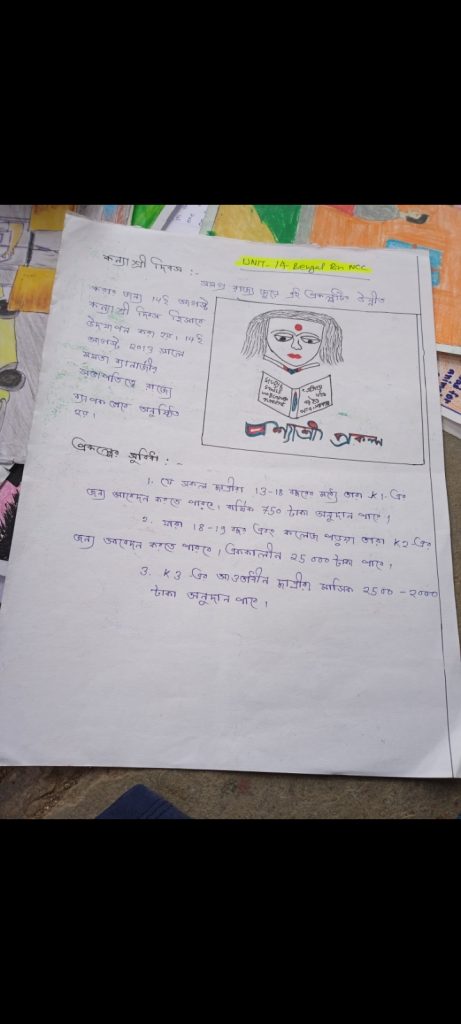 কন্যা শ্রী দিবস :-
UNIT- 1A- Bengal Bn NCC
সমগ্র রাজ্য জুরে এই প্রকল্পটির
১৪ই আগস্ট
কন্যা শ্রী দিবস হিসাবে
উদযাপন করা হয়। ১৪ই
আগস্ট ২০১৭ সালে
মমতা ব্যানার্জীর
সভাপতিত্বে রাজ্যে
অনুষ্ঠিত
হয়।
শ্রী প্রকল্প
প্রকল্পের সুবিধা :-
1. যে সকল ছাত্রীরা 13-18 বছরের মধ্যে তারা K1-এর
জন্য আবেদন করতে পারবে। বার্ষিক 750 টাকা অনুদান পাবে।
2. যারা 18-19 বছর এবং কলেজ পড়ুয়া তারা K2-এর
জন্য আবেদন করতে পারবে। এককালীন 25000 টাকা পাবে।
3. K3 এর আওতাধীন ছাত্রীরা মাসিক 2500-2000
টাকা অনুদান পাবে।